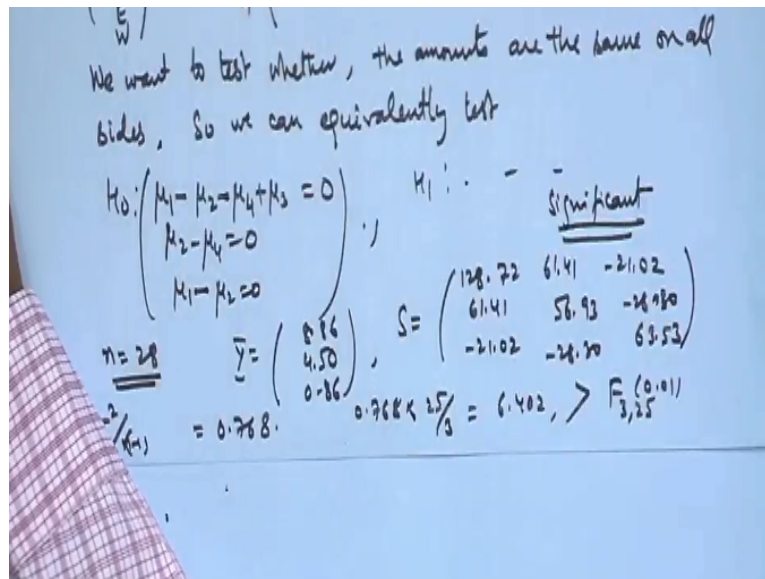 E
W
We want to test whether, the amounts are the same on all
sides, So we can equivalently test
H0: ( μ1 - μ2 - μ4 + μ3 = 0
μ2 - μ4 = 0
μ1 - μ2 = 0 ) ., H1 : . - -
Significant
n = 28 ȳ = ( 8.86
4.50
0.86 ) , S = ( 128.72 61.41 -21.02
61.41 56.93 -28.30
-21.02 -28.30 63.53 )
2/(n-1) = 0.768. 0.768 × 25/3 = 6.402, > F3,25 (0.01)